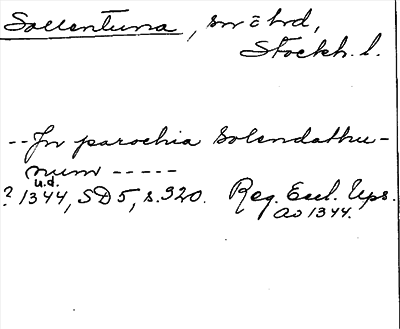 Sollentuna, sn o hd,
Stockh. l.
-- In parochia Solendathu-
num -----
u.d.
? 1344, SD 5, s. 320. Reg. Eccl. Ups.
av 1344.